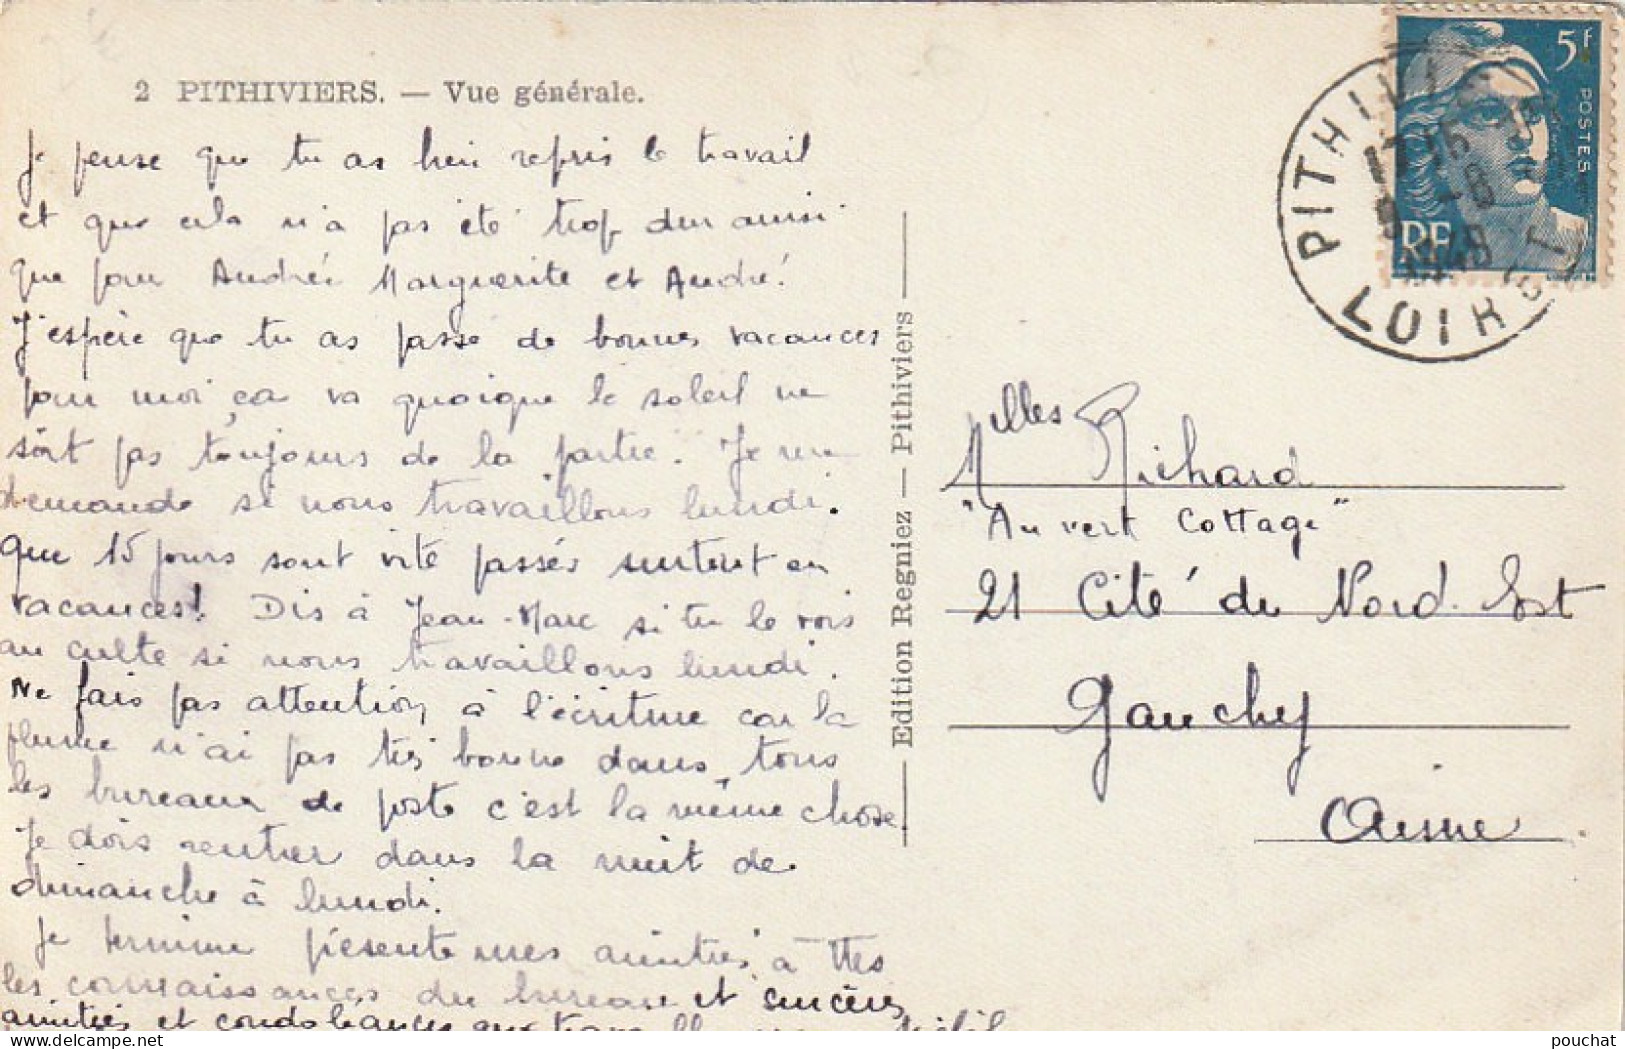 2 PITHIVIERS. — Vue générale.
Je pense que tu as bien repris le travail
et que cela n'a pas été trop dur ainsi
que pour Andrée Marguerite et André.
J'espère que tu as passé de bonnes vacances
pour moi ça va quoique le soleil ne
soit pas toujours de la partie. Je me
demande si nous travaillons lundi.
Que 15 jours sont vite passés surtout en
vacances! Dis à Jean-Marc si tu le vois
au culte si nous travaillons lundi.
Ne fais pas attention à l'écriture car la
plume n'ai pas très bonne dans tous
les bureaux de poste c'est la même chose.
Je dois rentrer dans la nuit de
dimanche à lundi.
Je termine présente mes amitiés à ttes
les connaissances du bureau et sincères
amitiés et
Edition Regniez — Pithiviers
5f
POSTES
RF
PITHIVIERS
15
9 -8
1949
LOIRET
Melles Richard
"Au vert Cottage"
21 Cité du Nord-Est
Gauchy
Aisne
pouchat